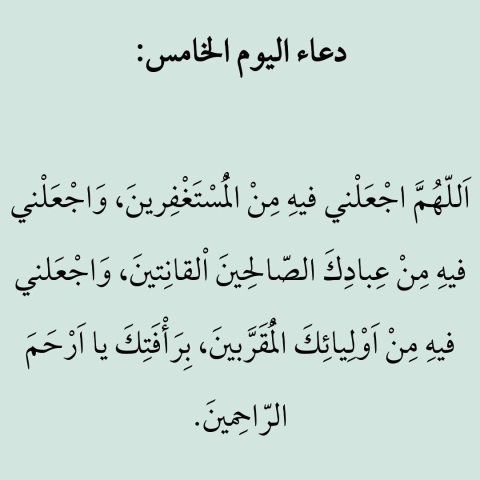 دعاء اليوم الخامس:
اَللّهُمَّ اجْعَلْني فيهِ مِنْ الْمُسْتَغْفِرينَ، وَاجْعَلْني
فيهِ مِنْ عِبادِكَ الصّالِحينَ اْلقانِتينَ، وَاجْعَلني
فيهِ مِنْ اَوْلِيائِكَ الْمُقَرَّبينَ، بِرَأْفَتِكَ يا اَرْحَمَ
الرّاحِمينَ.